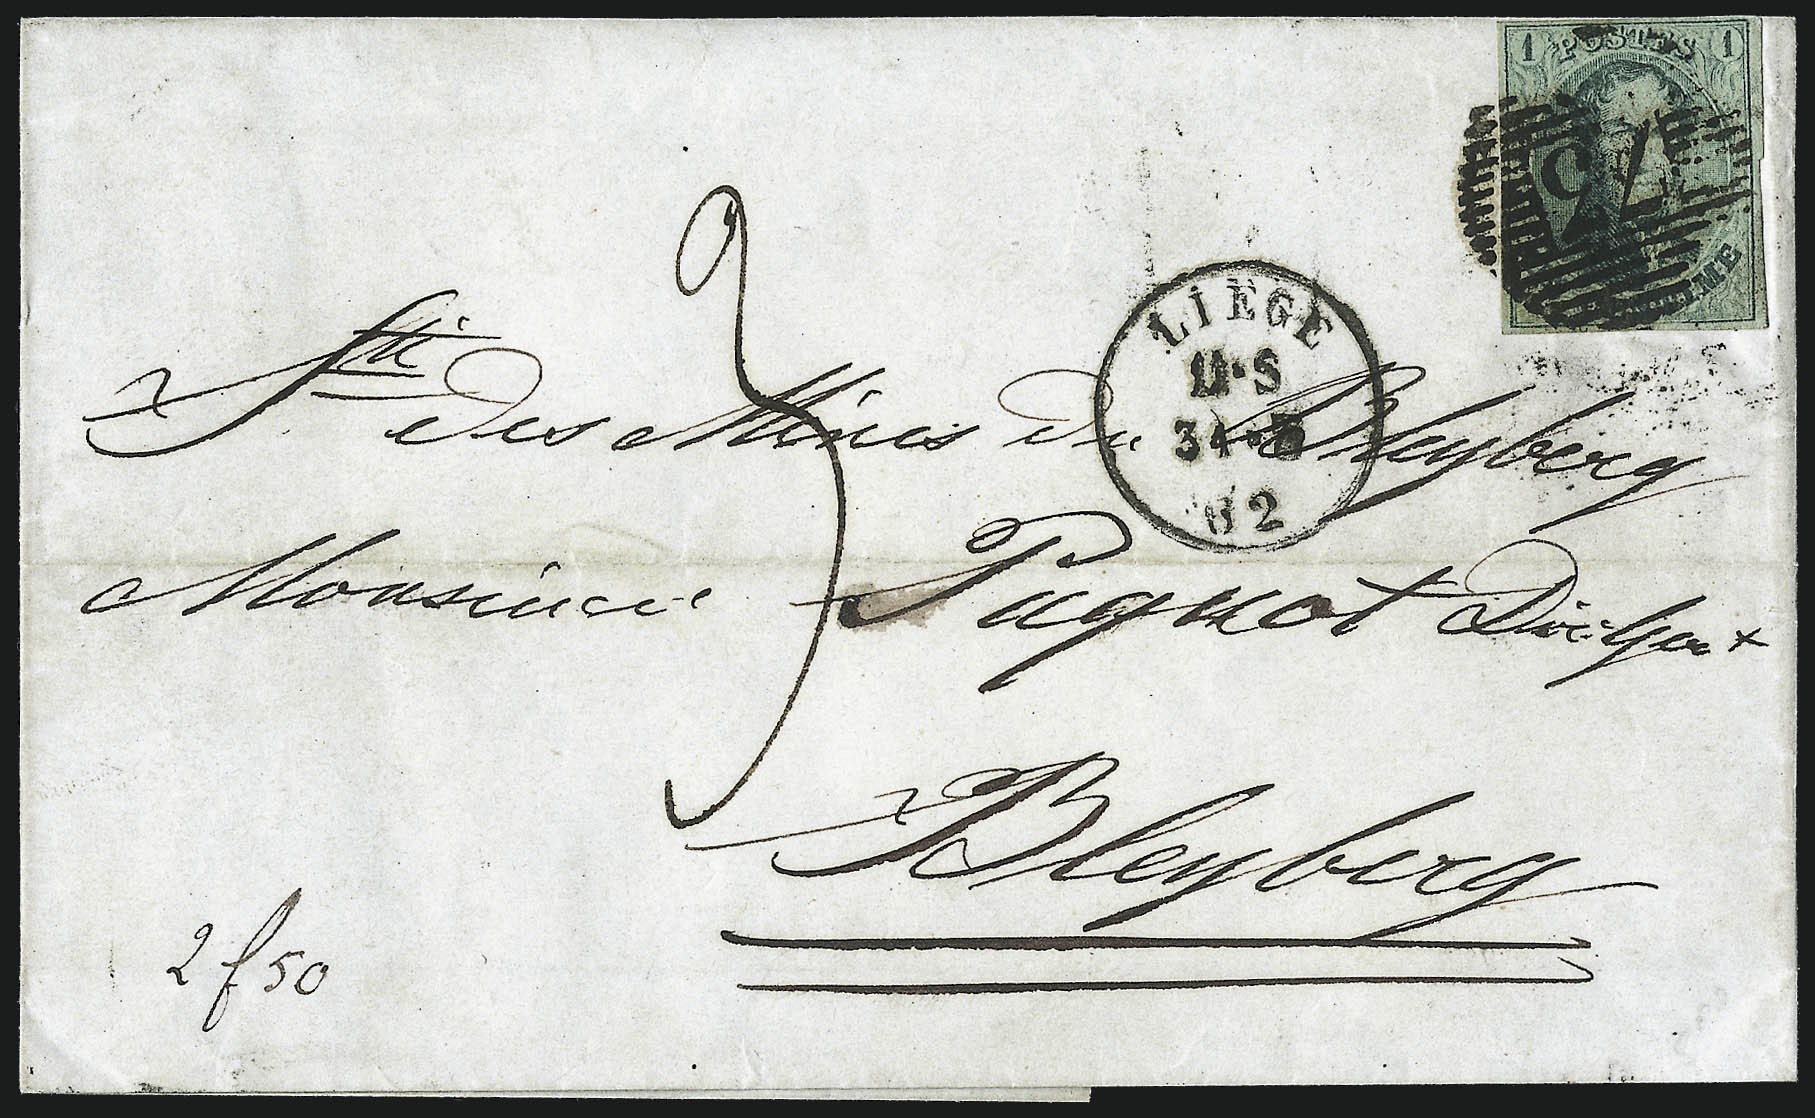 1 POSTES 1
73
LIEGE
11·S
31·5
62
3
Sté des Mines du Bleyberg
Monsieur Paquot Dirigent
Bleyberg
2 f 50